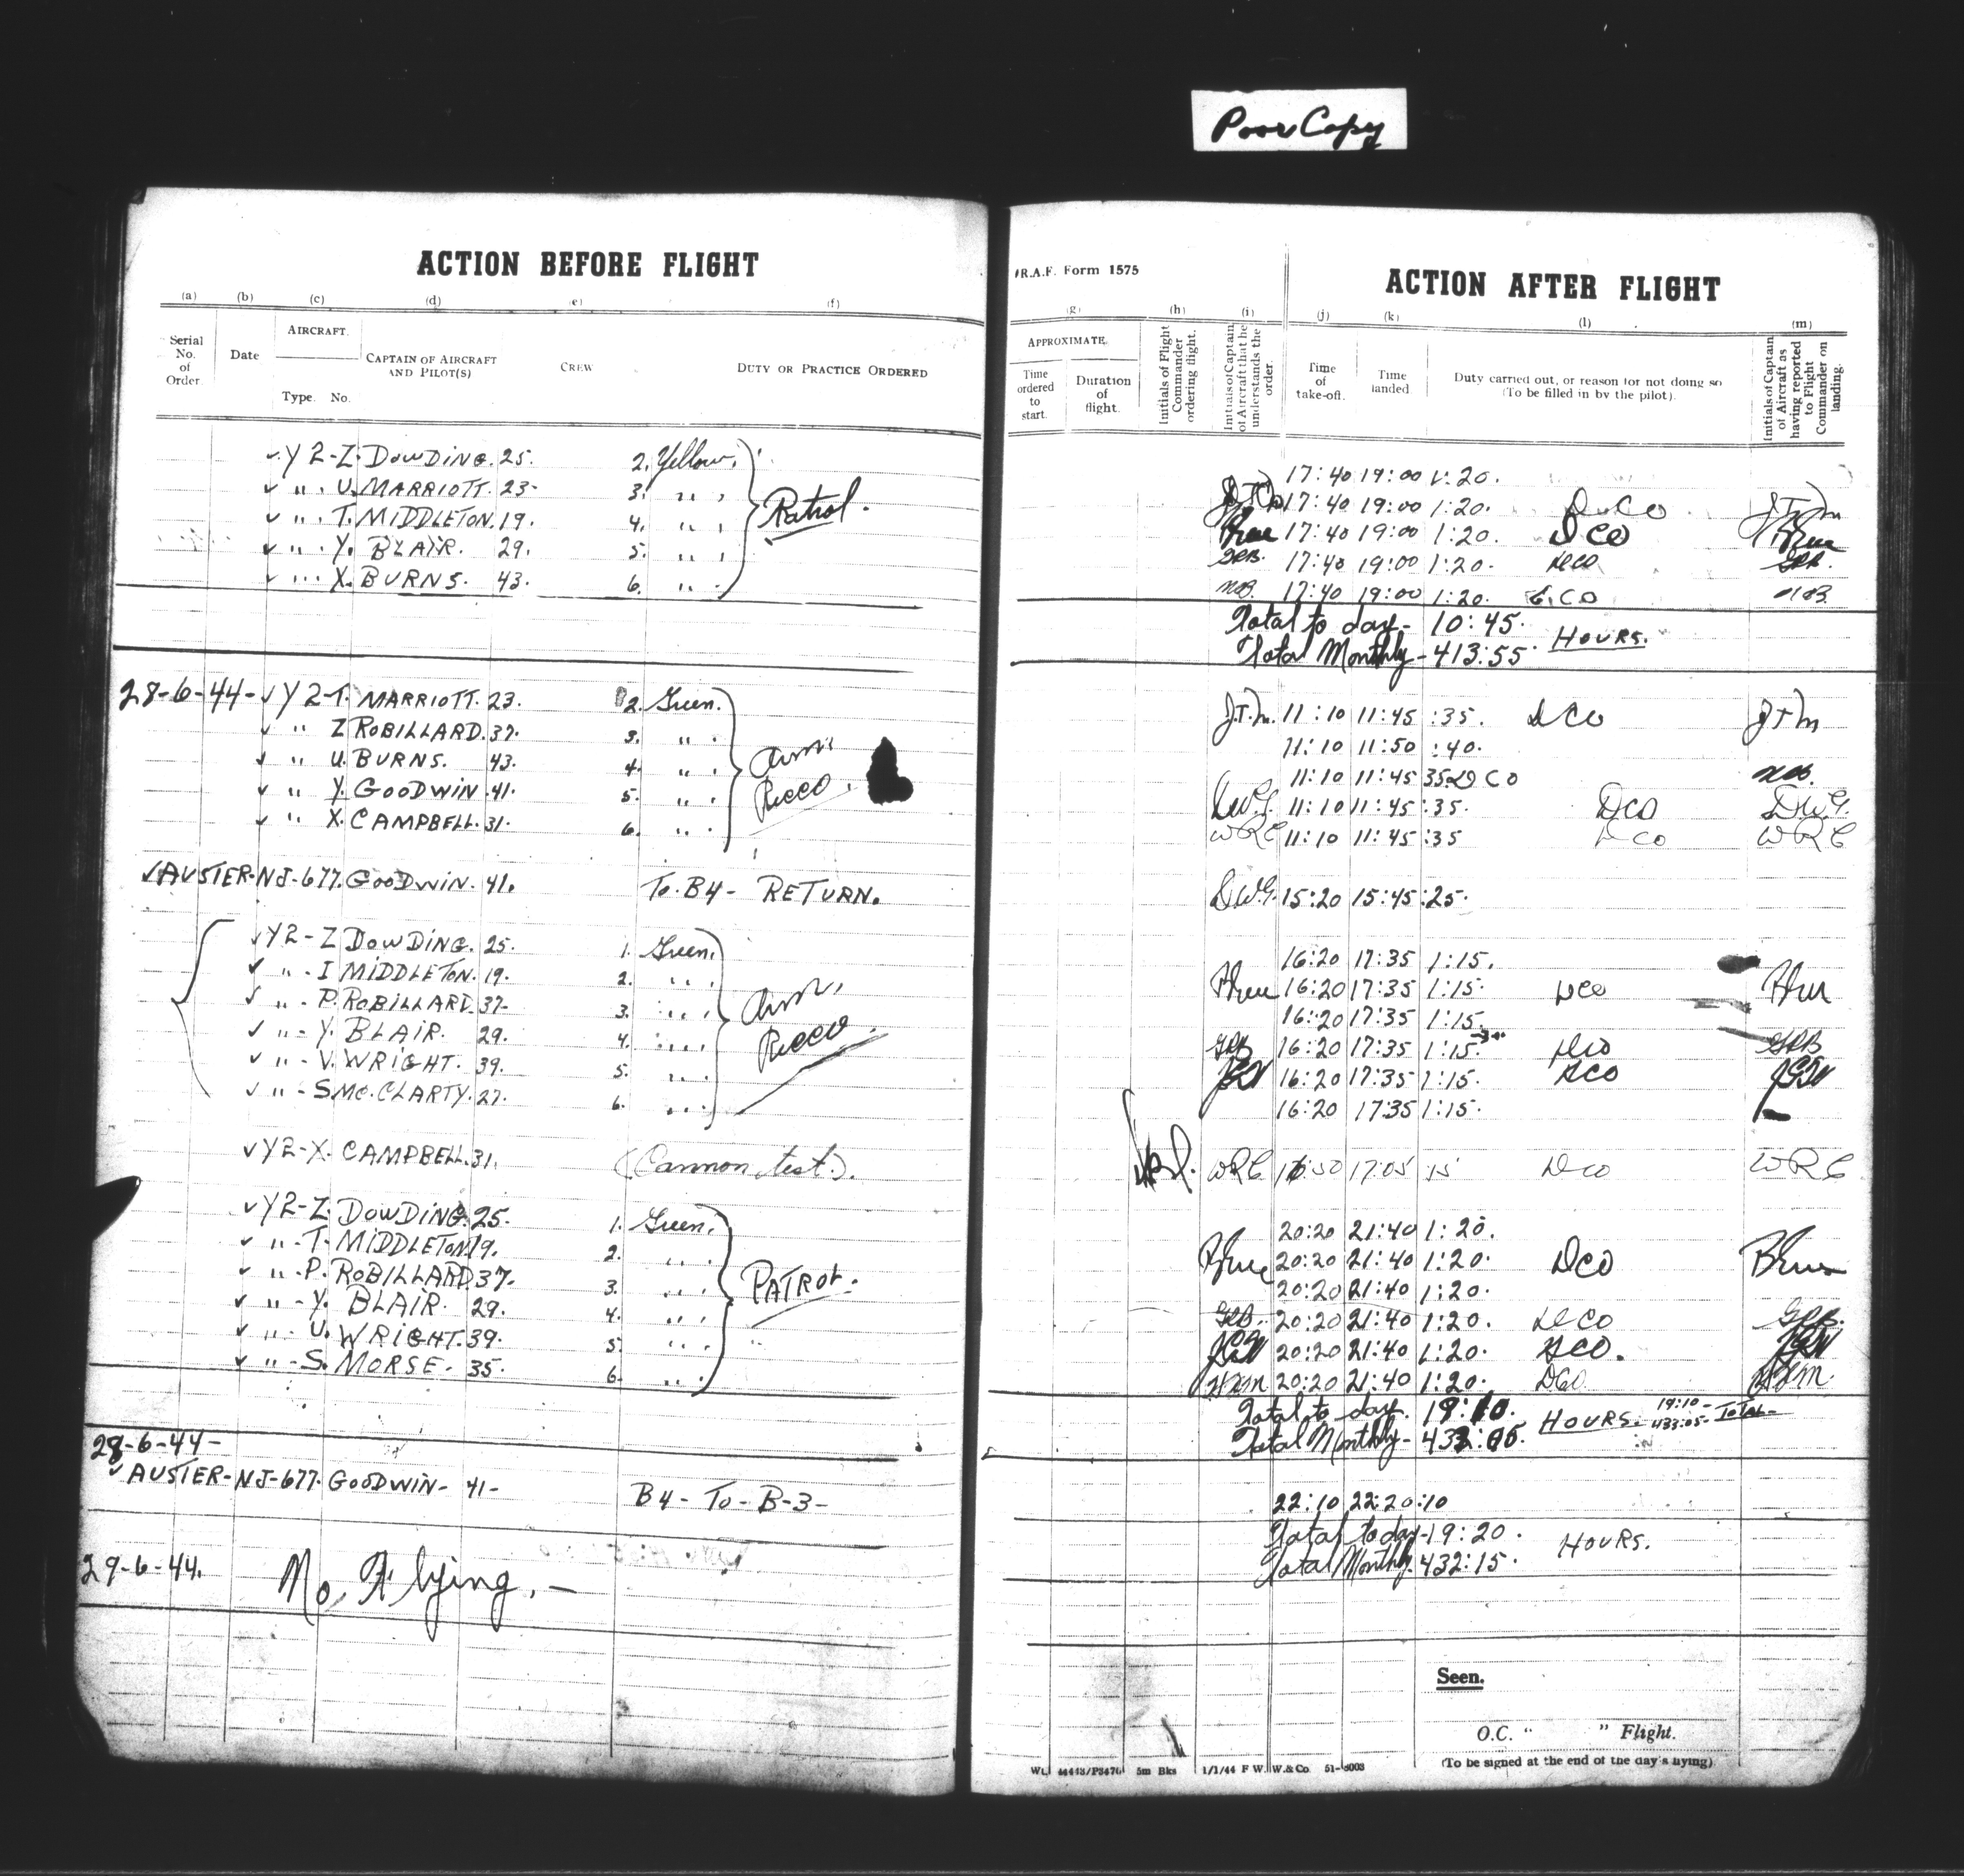 Poor Copy
ACTION BEFORE FLIGHT
(a) (b) (c) (d) (e) (f)
Serial No. of Order
Date
AIRCRAFT.
Type. No.
CAPTAIN OF AIRCRAFT AND PILOT(S)
CREW
DUTY OR PRACTICE ORDERED
Y2-Z. DOWDING. 25. 2. Yellow.
" . U. MARRIOTT. 23- 3. " "
" . T. MIDDLETON. 19. 4. " " Patrol.
" . Y. BLAIR. 29. 5. " "
" . X. BURNS. 43. 6. " "
28-6-44- Y2-T. MARRIOTT. 23. 2. Green.
" Z ROBILLARD. 37. 3. " "
" U. BURNS. 43. 4. " " Arm.
" Y. GOODWIN. 41. 5. " " Recco.
" X. CAMPBELL. 31. 6. " "
AUSTER-NJ-677. GOODWIN. 41. To-B4- RETURN.
Y2-Z DOWDING. 25. 1. Green.
" - I MIDDLETON. 19. 2. " "
" - P. ROBILLARD. 37- 3. " " Arm.
" - Y. BLAIR. 29. 4. " " Recco
" - V. WRIGHT. 39. 5. " "
" - S Mc.CLARTY. 27. 6. " "
Y2-X. CAMPBELL. 31. (Cannon test.).
Y2-Z. DOWDING. 25. 1. Green.
" - T. MIDDLETON 19. 2. " "
" - P. ROBILLARD 37. 3. " " PATROL.
" - Y. BLAIR. 29. 4. " "
" - U. WRIGHT. 39. 5. " "
" - S. MORSE. 35. 6. " "
28-6-44-
AUSTER-NJ-677. GOODWIN- 41- B4- To- B-3-
29-6-44. No. Flying. -
R.A.F. Form 1575
ACTION AFTER FLIGHT
(g) (h) (i) (j) (k) (l) (m)
APPROXIMATE.
Time ordered to start.
Duration of flight.
Initials of Flight Commander ordering flight.
Initials of Captain of Aircraft that he understands the order.
Time of take-off.
Time landed.
Duty carried out, or reason for not doing so (To be filled in by the pilot).
Initials of Captain of Aircraft as having reported to Flight Commander on landing.
17:40 19:00 1:20.
17:40 19:00 1:20. DCO JTM
17:40 19:00 1:20. DCO
GRB. 17:40 19:00 1:20. DCO GRB.
NB. 17:40 19:00 1:20. CO NB
Total to day- 10:45.
Total Monthly- 413:55 HOURS.
J.T.M. 11:10 11:45 :35. DCO JTM
11:10 11:50 :40.
11:10 11:45 35 DCO NB.
DWG. 11:10 11:45 :35. DCO DWG.
WRC 11:10 11:45 :35 DCO WRC
DWG. 15:20 15:45 :25.
16:20 17:35 1:15.
16:20 17:35 1:15. DCO
16:20 17:35 1:15.
GRB 16:20 17:35 1:15. DCO GRB
JGW 16:20 17:35 1:15. DCO JGW
16:20 17:35 1:15.
WRC 16:50 17:05 15 DCO WRC
20:20 21:40 1:20.
20:20 21:40 1:20. DCO
20:20 21:40 1:20.
GRB. 20:20 21:40 1:20. DCO GRB.
JGW 20:20 21:40 1:20. DCO. JGW
20:20 21:40 1:20. DCO
Total to day. 19:10. HOURS. 19:10-
Total Monthly- 432:05. 433:05- TOTAL-
22:10 22:20 :10
Total today-19:20.
Total Monthly. 432:15. HOURS.
Seen.
O.C. " " Flight.
(To be signed at the end of the day's flying)
5m Bks 1/1/44 F W. W.& Co.